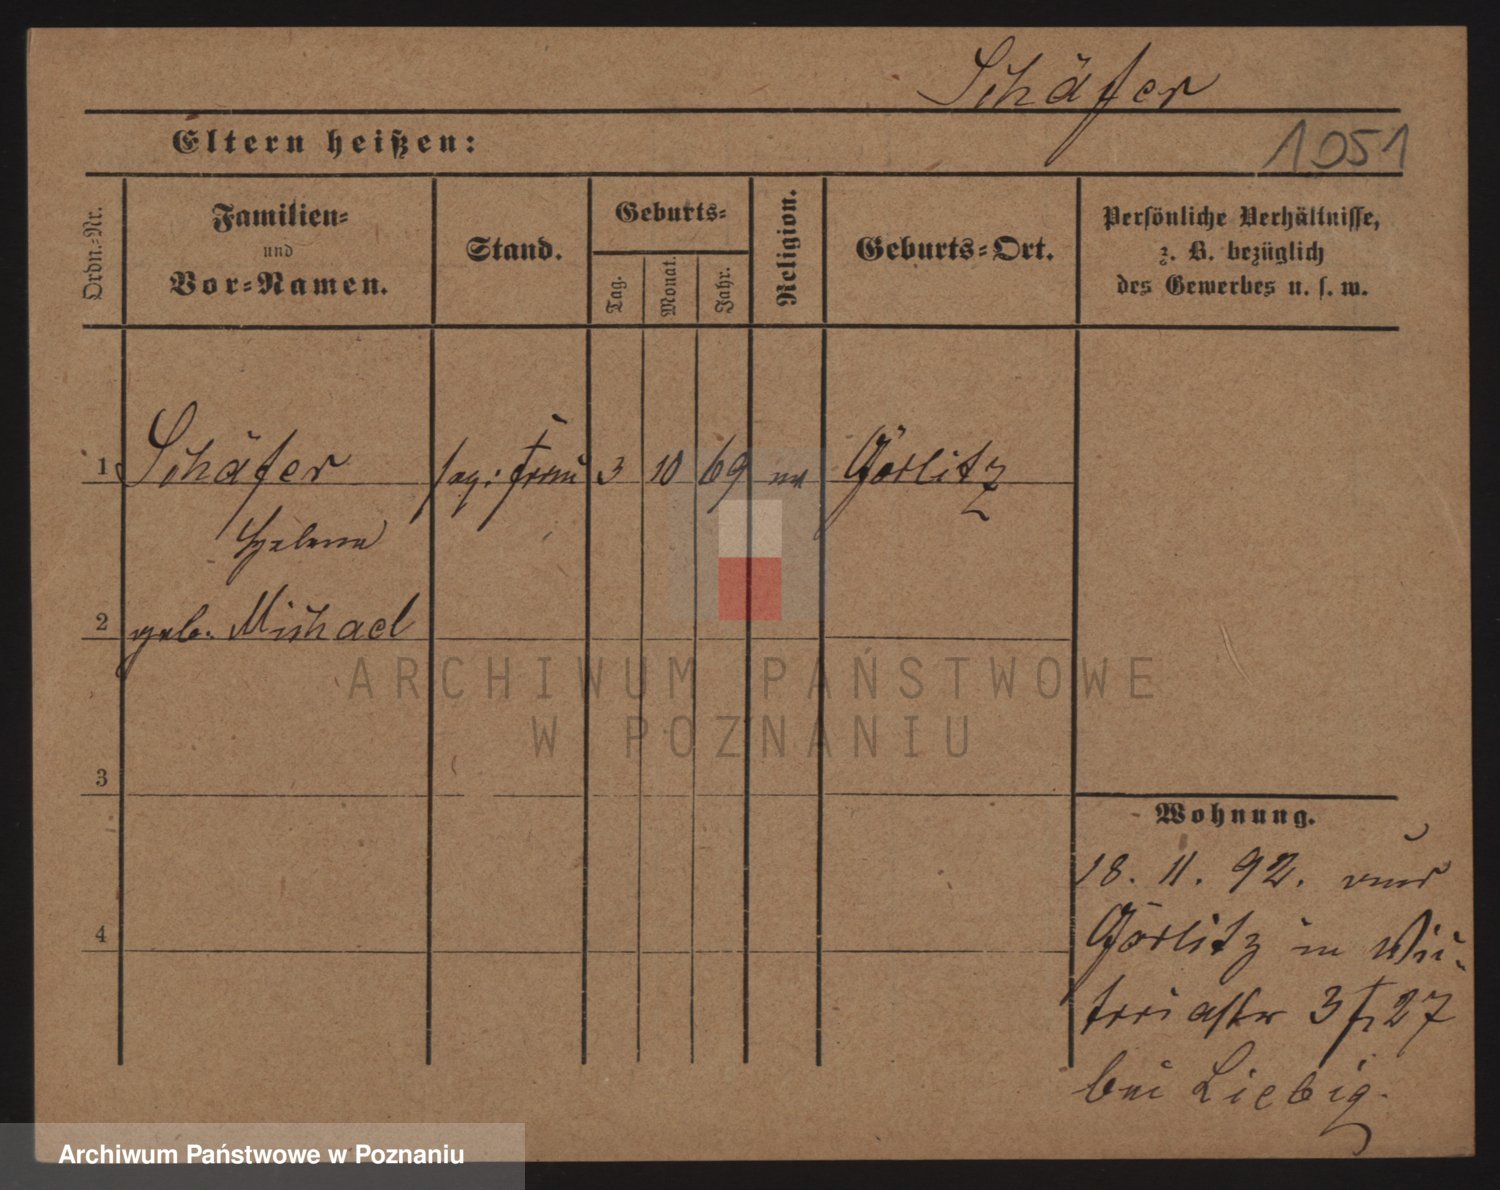 Schäfer
1051
Eltern heißen:
Ordn.-Nr.
Familien-
und
Vor-Namen.
Stand.
Geburts-
Tag.
Monat.
Jahr.
Religion.
Geburts-Ort.
Persönliche Verhältnisse,
z. B. bezüglich
des Gewerbes u. s. w.
1 Schäfer 3 10 69 Görlitz
Helene
2 geb. Michael
3
4
Wohnung.
18. 11. 92. von
Görlitz in
3 27
bei Liebig.
ARCHIWUM PAŃSTWOWE
W POZNANIU
Archiwum Państwowe w Poznaniu